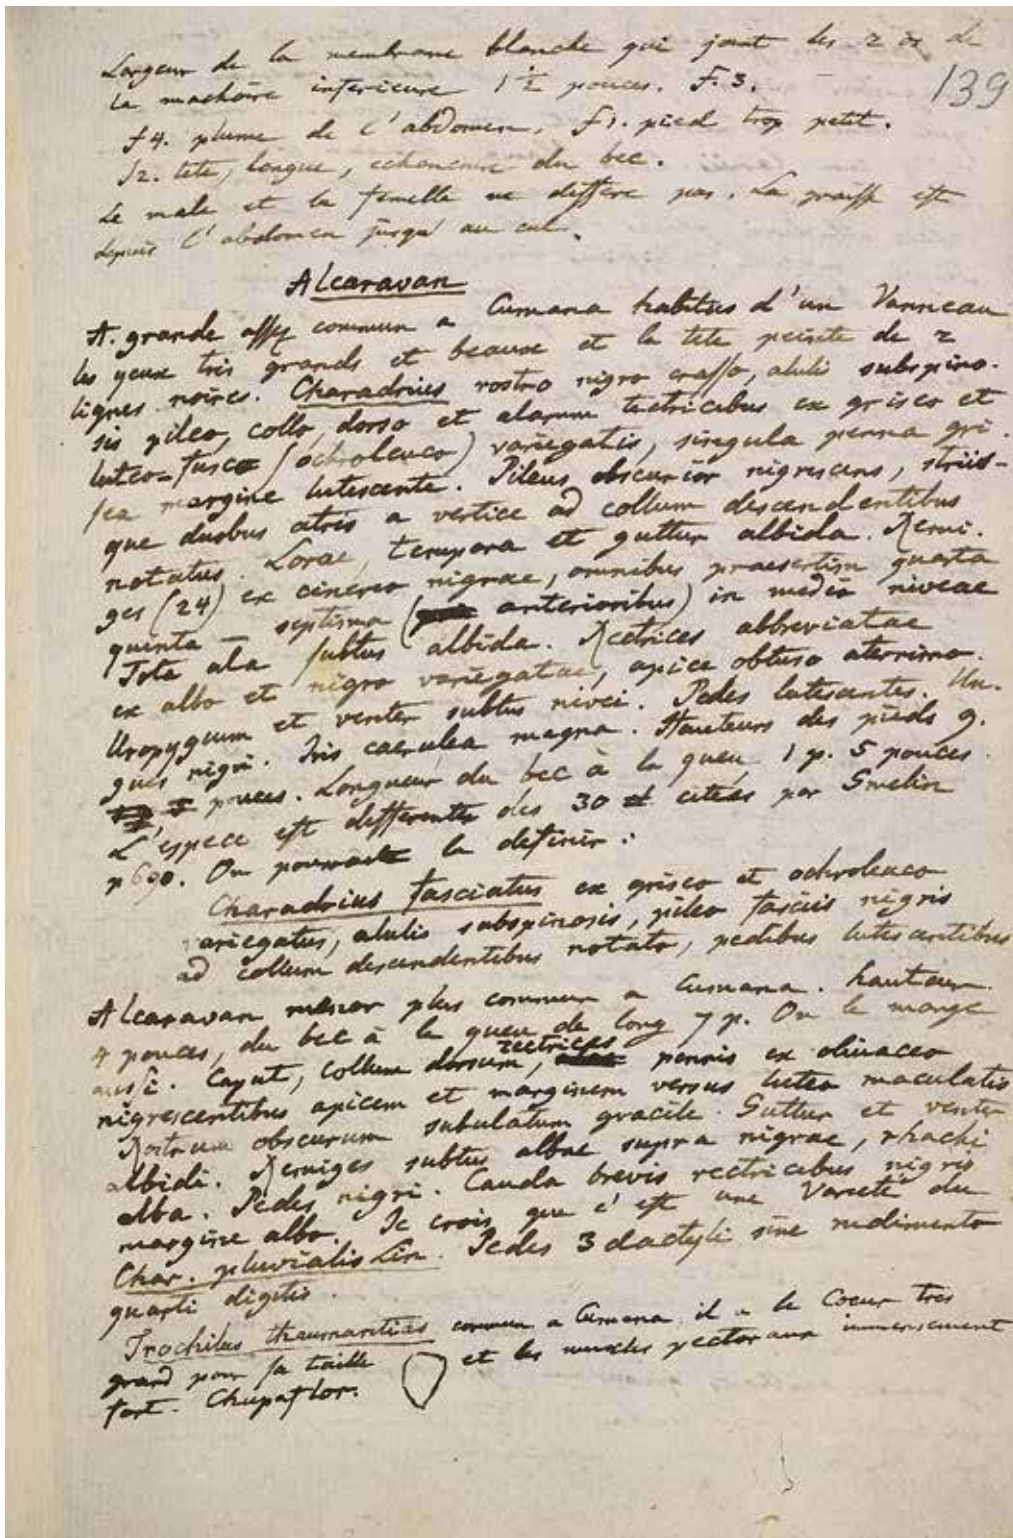 Largeur de la membrane blanche qui joint les 2 os de
la machoire inferieure 1 1/2 pouces. F. 3.
139
f 4. plume de l'abdomen. f 1. pied trop petit.
f 2. tete, langue, echancrure du bec.
Le male et la femelle ne differe pas. La graisse est
depuis l'abdomen jusqu'au cul.
Alcaravan
A. grande assez commun a Cumana habitus d'un Vanneau
les yeux tres grands et beaux et la tete peinte de 2
lignes noires. Charadrius rostro nigro crasso, alulis subspino-
sis pileo, collo, dorso et alarum tectricibus ex griseo et
luteo-fusco (ochroleuco) variegatis, singula penna gri-
sea margine lutescente. Pileus obscurior nigrescens, striis-
que duobus atris a vertice ad collum descendentibus
notatus. Lorae, tempora et guttur albida. Remi-
ges (24) ex cinereo nigrae, omnibus praesertim quarta
quinta - septima (anterioribus) in medio niveae
Tota ala subtus albida. Rectrices abbreviatae
ex albo et nigro variegatae, apice obtuso aterrimo.
Uropygium et venter subtus nivei. Pedes lutescentes. Un-
gues nigri. Iris caerulea magna. Hauteurs des pieds 9.
pouces. Longueur du bec à la queu 1 p. 5 pouces.
L'espece est differente des 30 citées par Gmelin
p 690. On pourrait la definir:
Charadrius fasciatus ex griseo et ochroleuco
variegatus, alulis subspinosis, pileo fasciis nigris
ad collum descendentibus notato, pedibus lutescentibus
Alcaravan menor plus commun a Cumana. hauteur
4 pouces, du bec à la queu de long 7 p. On le mange
aussi. Caput, collum dorsum, rectrices pennis ex olivaceo
nigrescentibus apicem et marginem versus luteo maculatis
Rostrum obscurum subulatum gracile. Guttur et venter
albidi. Remiges subtus albae supra nigrae, rhachi
alba. Pedes nigri. Cauda brevis rectricibus nigris
margine albo. Je crois que c'est une Varieté du
Char. pluvialis Lin. Pedes 3 dactyli sine rudimento
quarti digitis.
Trochilus thaumantias commun a Cumana il a le Coeur tres
grand pour sa taille et les muscles pectoraux immensement
fort. Chupaflor.